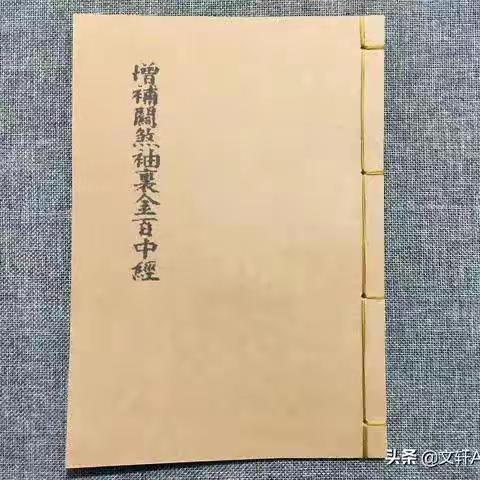 增補關煞袖裏金百中經
头条 @文轩A